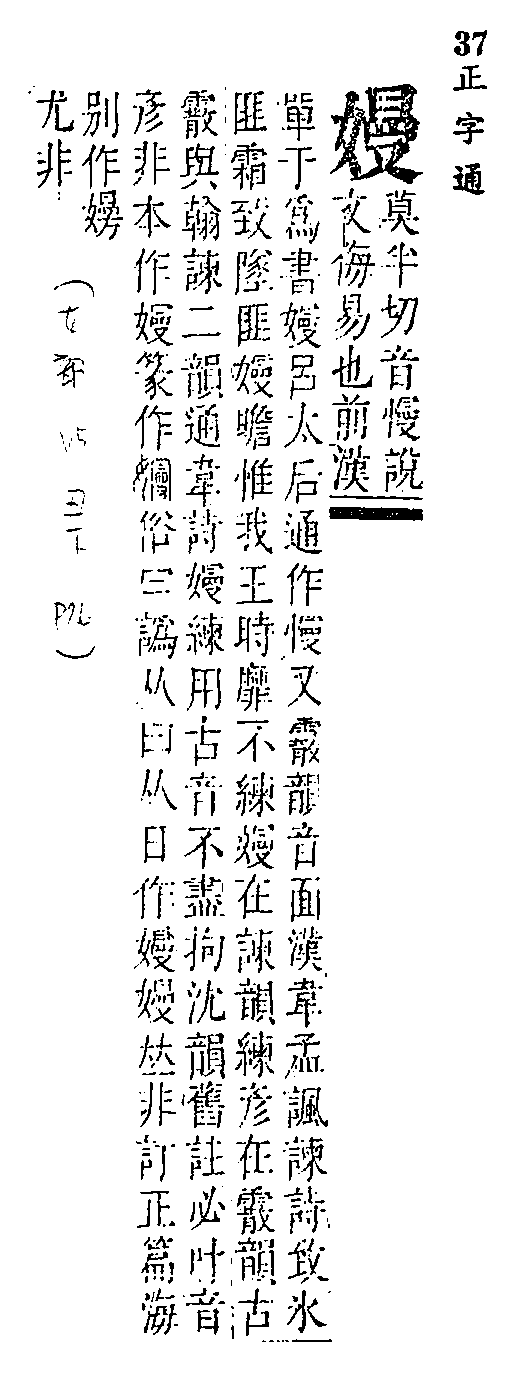 37正字通
嫚
莫半切音慢說
文侮易也前漢
單于爲書嫚呂太后通作慢又霰韻音面漢韋孟諷諫詩致冰
匪霜致墜匪嫚瞻惟我王時靡不練嫚在諫韻練彥在霰韻古
霰與翰諫二韻通韋詩嫚練用古音不盡拘沈韻舊註必叶音
彥非本作嫚篆作俗譌从曰从日作嫚嫚𠀤非訂正篇海
別作
尤非
(女部